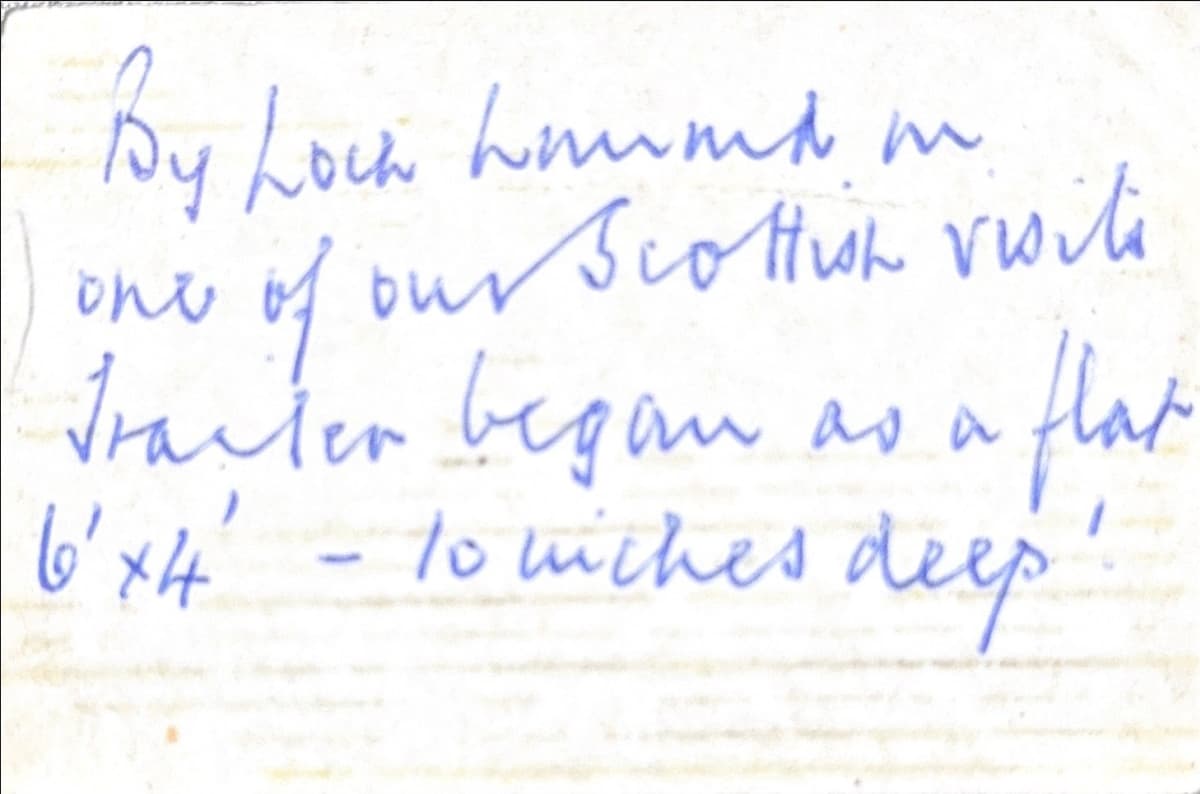 By Loch Lomond on
one of our Scottish visits
Trailer began as a flat
6' x 4' - 10 inches deep!